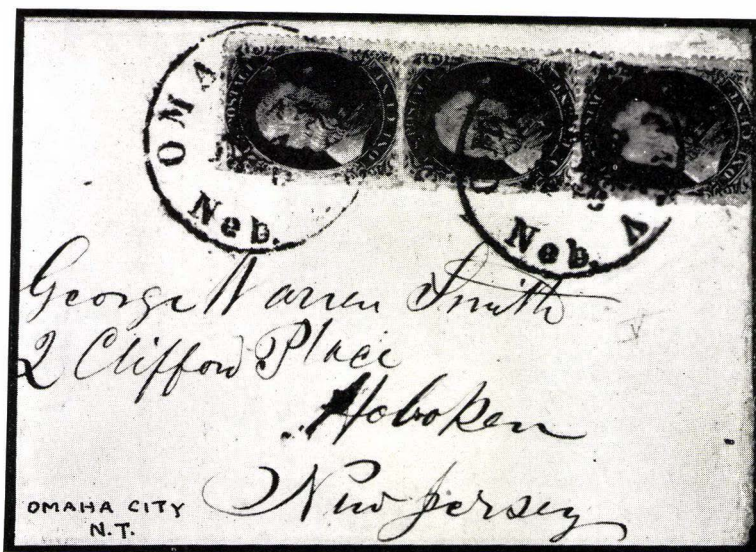 OMA
Neb.
Neb.
George Warren Smith
2 Clifford Place
Hoboken
New Jersey
OMAHA CITY
N.T.